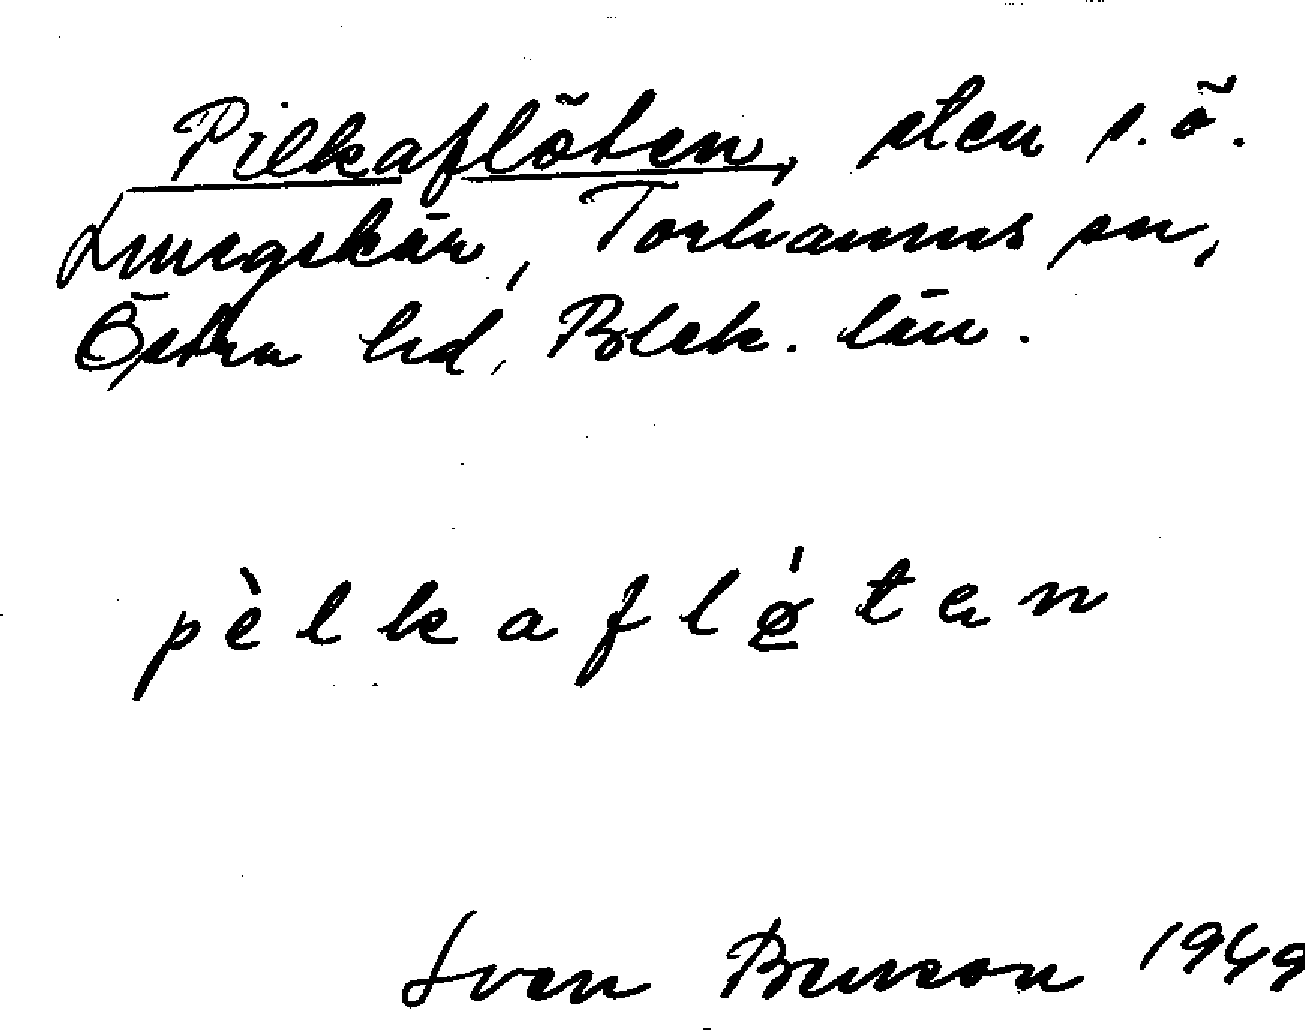 Pilkaflöten, sten s.ö.
Långskär, Torhamns sn,
Östra hd, Blek. län.
pèlkafløtən
Sven Benson 1949